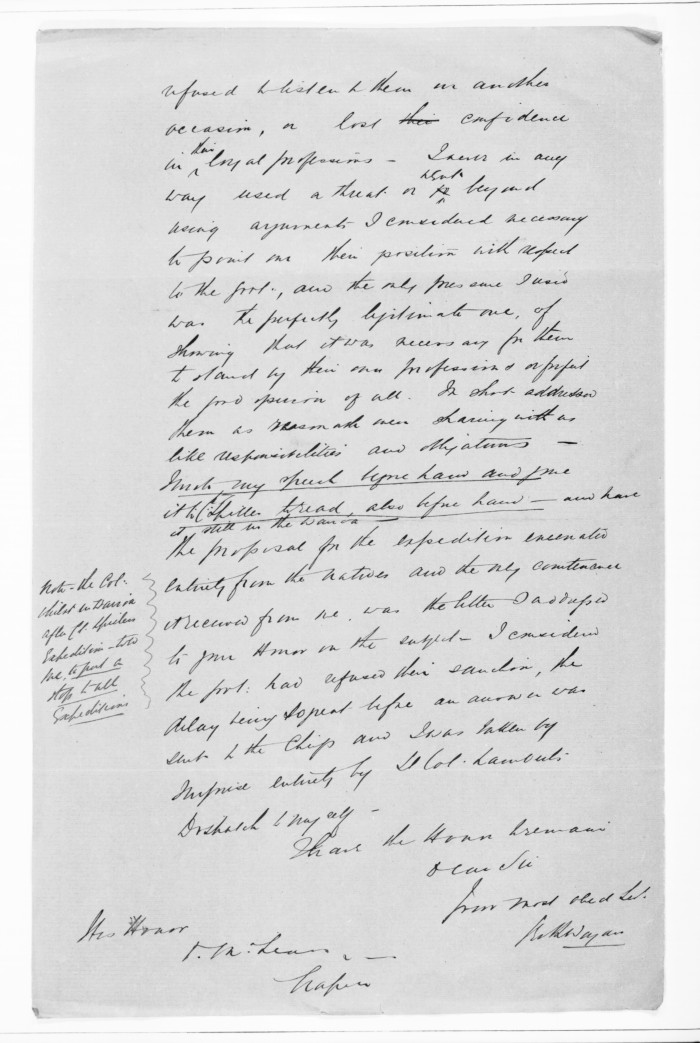 refused to listen to them on another
occasion, or lost their confidence
in their loyal professions – I never in any
way used a threat or went beyond
using arguments I considered necessary
to point out their position with respect
to the govt., and the only pressure I used
was the perfectly legitimate one, of
showing that it was necessary for them
to stand by their own professions or forfeit
the good opinion of all. In short addressed
them as reasonable men sharing with us
like responsibilities and obligations –
I wrote my speech before hand and gave
it to C. Spiller to read, also before hand – and have
it still in the
The proposal for the expedition emanated
entirely from the natives and the only countenance
it received from me was the letter I addressed
to your Honor on the subject – I considered
the govt: had refused their sanction, the
delay being so great before an answer was
sent to the Chiefs and I was taken by
surprise entirely by Lt Col. Lambert's
Despatch to myself –
I have the Honor to remain
Dear Sir
Your most obed Svt.
His Honor
D. McLean
Napier
Note – the Col:
whilst in Wairoa
after Ct. Spillers
Expedition – told
me to put a
stop to all
Expeditions